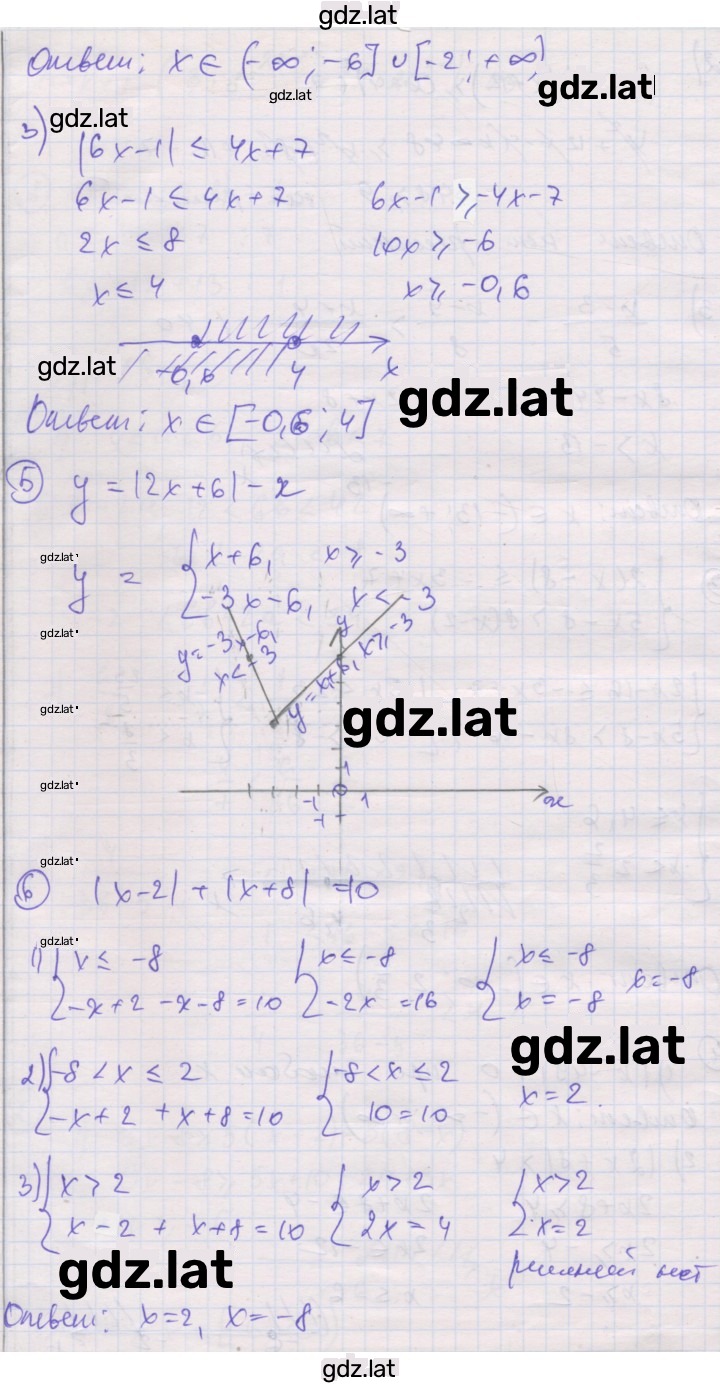 gdz.lat
Ответ: x ∈ (-∞; -6] ∪ [-2; +∞)
gdz.lat
gdz.lat
gdz.lat
3) |6x-1| ≤ 4x+7
6x-1 ≤ 4x+7 6x-1 ≥ -4x-7
2x ≤ 8 10x ≥ -6
x ≤ 4 x ≥ -0,6
gdz.lat
-0,6 4 x
gdz.lat
Ответ: x ∈ [-0,6; 4]
5 y = |2x+6| - x
gdz.lat
y = { x+6, x ≥ -3
-3x-6, x < -3
gdz.lat
y=-3x-6, y
x<-3 y=x+6, x≥-3
gdz.lat
gdz.lat
1
gdz.lat
-1 0 1 x
-1
gdz.lat
6 |x-2| + |x+8| = 10
gdz.lat
1) { x ≤ -8 { x ≤ -8 { x ≤ -8
-x+2 -x-8 = 10 -2x = 16 x = -8 x = -8
gdz.lat
2) { -8 < x ≤ 2 { -8 < x ≤ 2
-x+2 + x+8 = 10 10 = 10 x = 2
3) { x > 2 { x > 2 { x > 2
x-2 + x+8 = 10 2x = 4 x = 2
gdz.lat
решений нет
Ответ: x=2, x=-8
gdz.lat